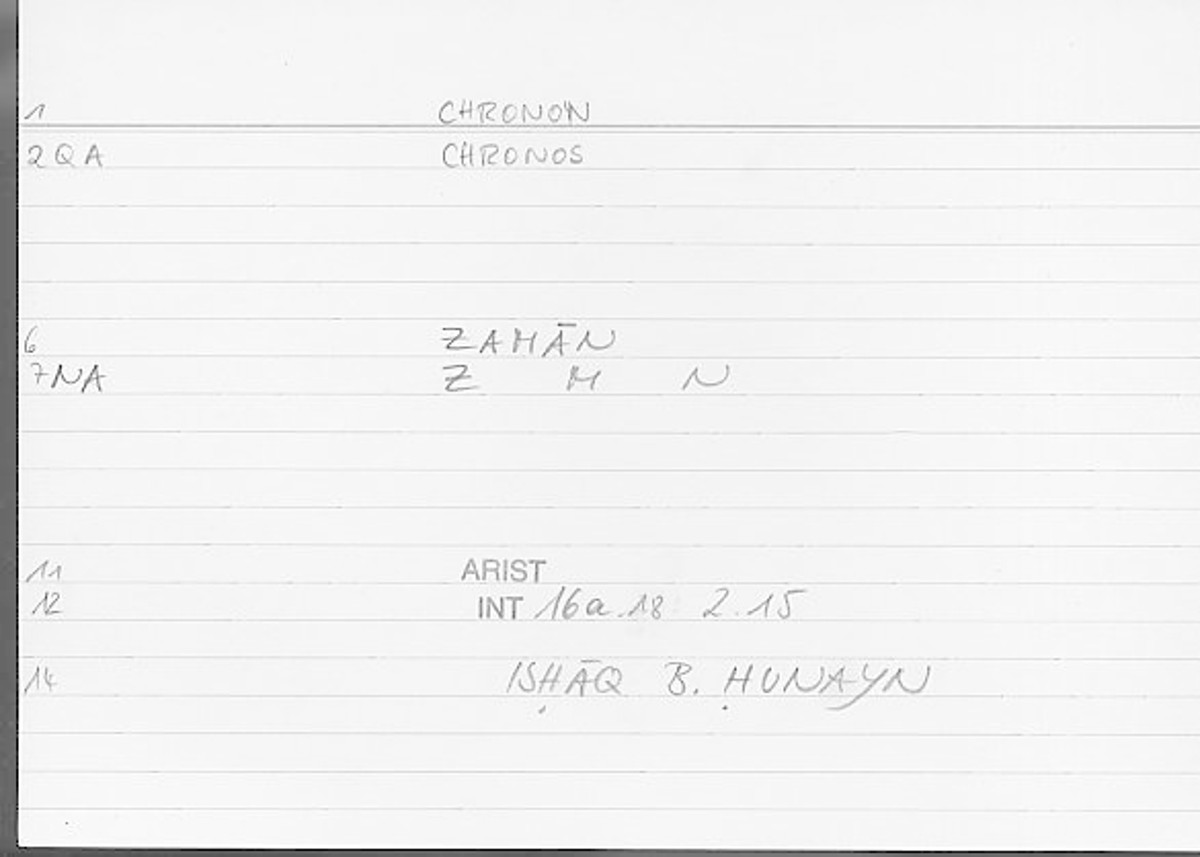 1 CHRONON
2QA CHRONOS
6 ZAMĀN
7NA Z M N
11 ARIST
12 INT 16a.18 2.15
14 ISḤĀQ B. ḤUNAYN